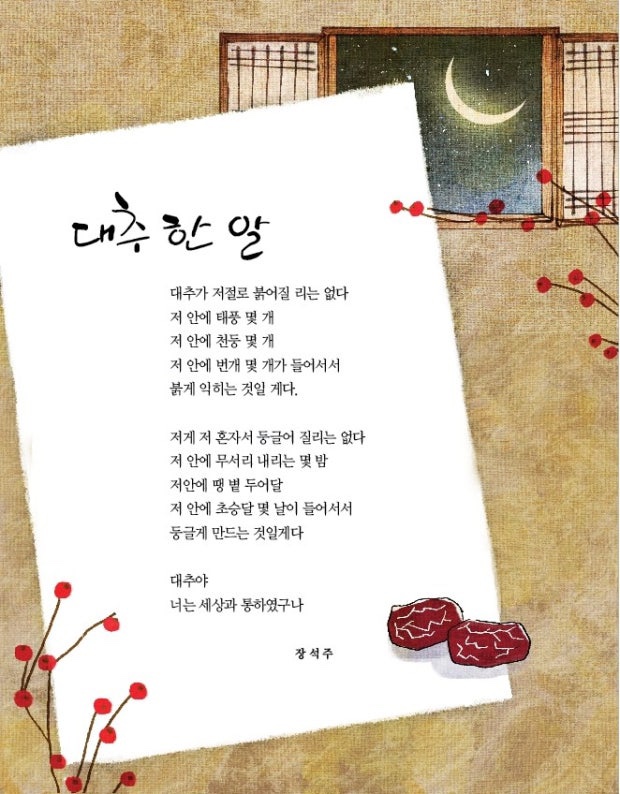 대추 한 알
대추가 저절로 붉어질 리는 없다
저 안에 태풍 몇 개
저 안에 천둥 몇 개
저 안에 번개 몇 개가 들어서서
붉게 익히는 것일 게다.
저게 저 혼자서 둥글어 질리는 없다
저 안에 무서리 내리는 몇 밤
저안에 땡 볕 두어달
저 안에 초승달 몇 날이 들어서서
둥글게 만드는 것일게다
대추야
너는 세상과 통하였구나
장석주